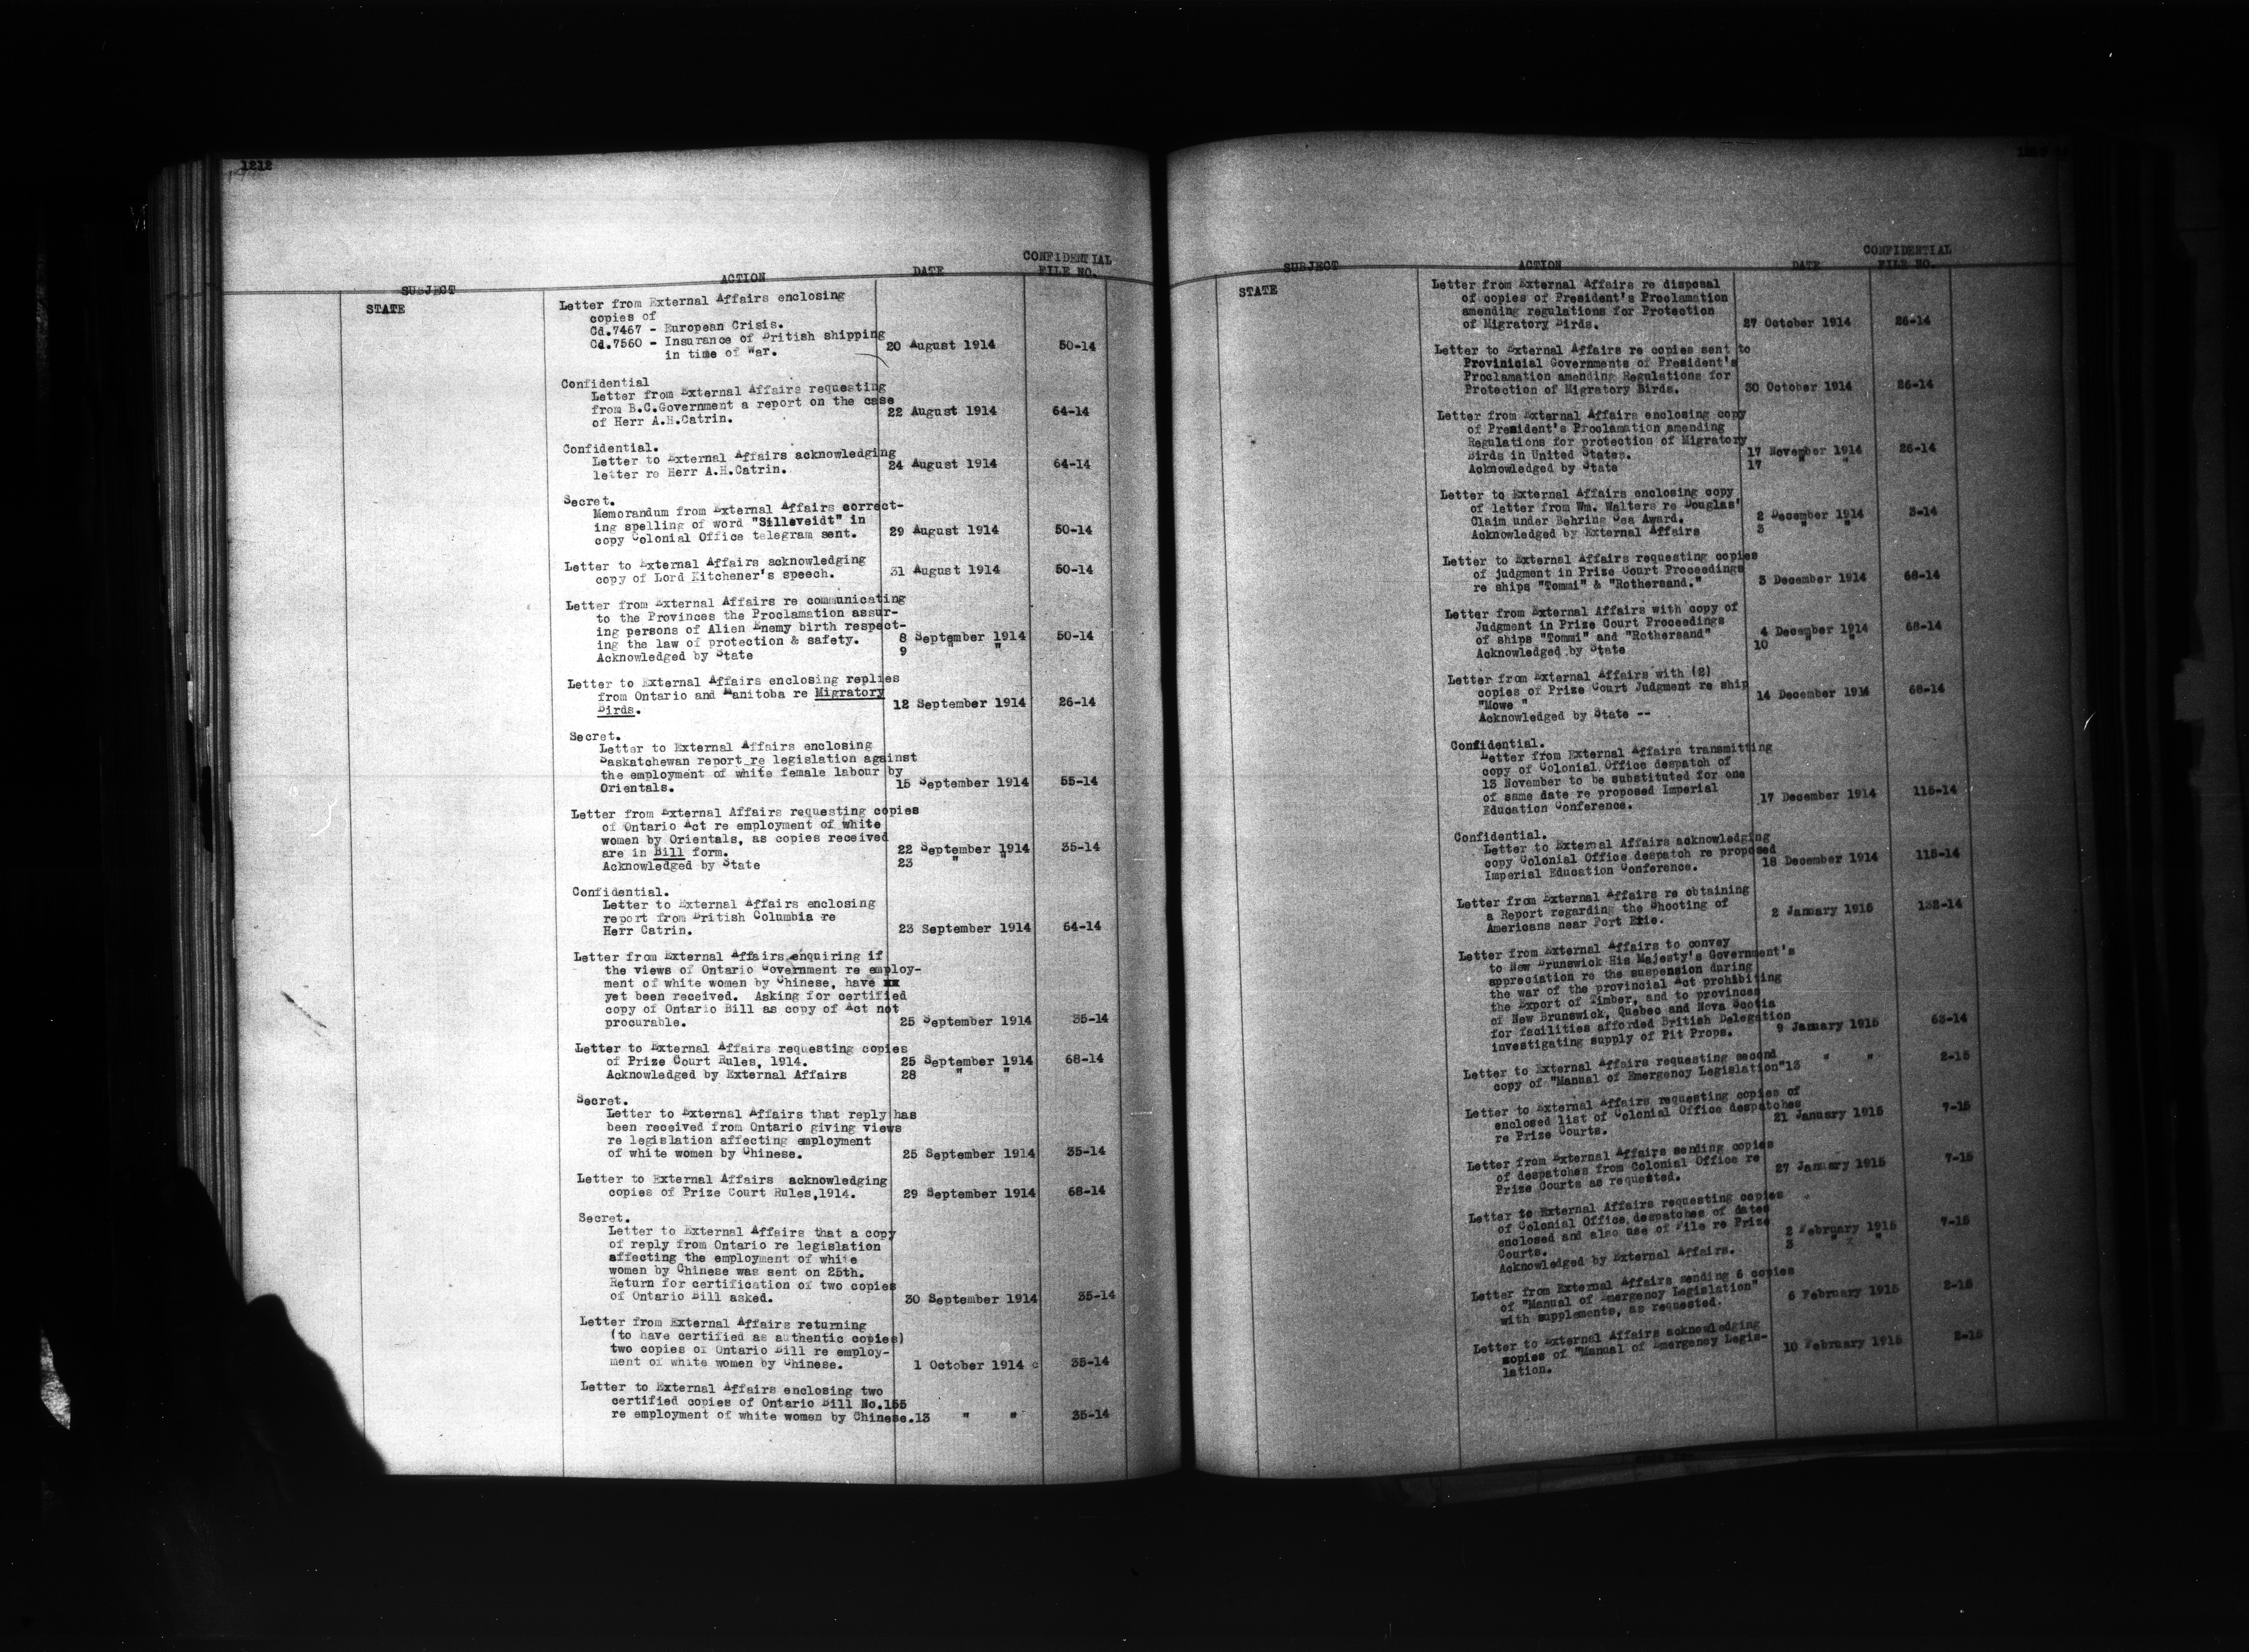 1212
CONFIDENTIAL
SUBJECT ACTION DATE FILE NO.
STATE
Letter from External Affairs enclosing
copies of
Cd.7467 - European Crisis.
Cd.7560 - Insurance of British shipping
in time of War. 20 August 1914 50-14
Confidential
Letter from External Affairs requesting
from B.C.Government a report on the case
of Herr A.H.Catrin. 22 August 1914 64-14
Confidential.
Letter to External Affairs acknowledging
letter re Herr A.H.Catrin. 24 August 1914 64-14
Secret.
Memorandum from External Affairs correct-
ing spelling of word "Silleveidt" in
copy Colonial Office telegram sent. 29 August 1914 50-14
Letter to External Affairs acknowledging
copy of Lord Kitchener's speech. 31 August 1914 50-14
Letter from External Affairs re communicating
to the Provinces the Proclamation assur-
ing persons of Alien Enemy birth respect-
ing the law of protection & safety. 8 September 1914 50-14
Acknowledged by State 9 " "
Letter to External Affairs enclosing replies
from Ontario and Manitoba re Migratory
Birds. 12 September 1914 26-14
Secret.
Letter to External Affairs enclosing
Saskatchewan report re legislation against
the employment of white female labour by
Orientals. 15 September 1914 55-14
Letter from External Affairs requesting copies
of Ontario Act re employment of white
women by Orientals, as copies received
are in Bill form. 22 September 1914 35-14
Acknowledged by State 23 " "
Confidential.
Letter to External Affairs enclosing
report from British Columbia re
Herr Catrin. 23 September 1914 64-14
Letter from External Affairs enquiring if
the views of Ontario Government re employ-
ment of white women by Chinese, have xx
yet been received. Asking for certified
copy of Ontario Bill as copy of Act not
procurable. 25 September 1914 35-14
Letter to External Affairs requesting copies
of Prize Court Rules, 1914. 25 September 1914 68-14
Acknowledged by External Affairs 28 " "
Secret.
Letter to External Affairs that reply has
been received from Ontario giving views
re legislation affecting employment
of white women by Chinese. 25 September 1914 35-14
Letter to External Affairs acknowledging
copies of Prize Court Rules,1914. 29 September 1914 68-14
Secret.
Letter to External Affairs that a copy
of reply from Ontario re legislation
affecting the employment of white
women by Chinese was sent on 25th.
Return for certification of two copies
of Ontario Bill asked. 30 September 1914 35-14
Letter from External Affairs returning
(to have certified as authentic copies)
two copies of Ontario Bill re employ-
ment of white women by Chinese. 1 October 1914 35-14
Letter to External Affairs enclosing two
certified copies of Ontario Bill No.155
re employment of white women by Chinese.13 " " 35-14
CONFIDENTIAL
SUBJECT ACTION DATE FILE NO.
STATE
Letter from External Affairs re disposal
of copies of President's Proclamation
amending regulations for Protection
of Migratory Birds. 27 October 1914 26-14
Letter to External Affairs re copies sent to
Provinicial Governments of President's
Proclamation amending Regulations for
Protection of Migratory Birds. 30 October 1914 26-14
Letter from External Affairs enclosing copy
of President's Proclamation amending
Regulations for protection of Migratory
Birds in United States. 17 November 1914 26-14
Acknowledged by State 17 " "
Letter to External Affairs enclosing copy
of letter from Wm. Walters re Douglas'
Claim under Behring Sea Award. 2 December 1914 3-14
Acknowledged by External Affairs 3 " "
Letter to External Affairs requesting copies
of judgment in Prize Court Proceedings
re ships "Tommi" & "Rothersand." 3 December 1914 68-14
Letter from External Affairs with copy of
Judgment in Prize Court Proceedings
of ships "Tommi" and "Rothersand" 4 December 1914 68-14
Acknowledged by State 10 " "
Letter from External Affairs with (2)
copies of Prize Court Judgment re ship
"Mowe " 14 December 1914 68-14
Acknowledged by State --
Confidential.
Letter from External Affairs transmitting
copy of Colonial Office despatch of
13 November to be substituted for one
of same date re proposed Imperial
Education Conference. 17 December 1914 115-14
Confidential.
Letter to External Affairs acknowledging
copy Colonial Office despatch re proposed
Imperial Education Conference. 18 December 1914 115-14
Letter from External Affairs re obtaining
a Report regarding the Shooting of
Americans near Fort Erie. 2 January 1915 132-14
Letter from External Affairs to convey
to New Brunswick His Majesty's Government's
appreciation re the suspension during
the war of the provincial Act prohibiting
the Export of Timber, and to provinces
of New Brunswick, Quebec and Nova Scotia
for facilities afforded British Delegation
investigating supply of Pit Props. 9 January 1915 63-14
Letter to External Affairs requesting second
copy of "Manual of Emergency Legislation"13 " " 2-15
Letter to External Affairs requesting copies of
enclosed list of Colonial Office despatches
re Prize Courts. 21 January 1915 7-15
Letter from External Affairs sending copies
of despatches from Colonial Office re
Prize Courts as requested. 27 January 1915 7-15
Letter to External Affairs requesting copies
of Colonial Office despatches of dates
enclosed and also use of File re Prize
Courts. 2 February 1915 7-15
Acknowledged by External Affairs. 3 " "
Letter from External Affairs sending 6 copies
of "Manual of Emergency Legislation"
with supplements, as requested. 6 February 1915 2-15
Letter to External Affairs acknowledging
copies of "Manual of Emergency Legis-
lation. 10 February 1915 2-15